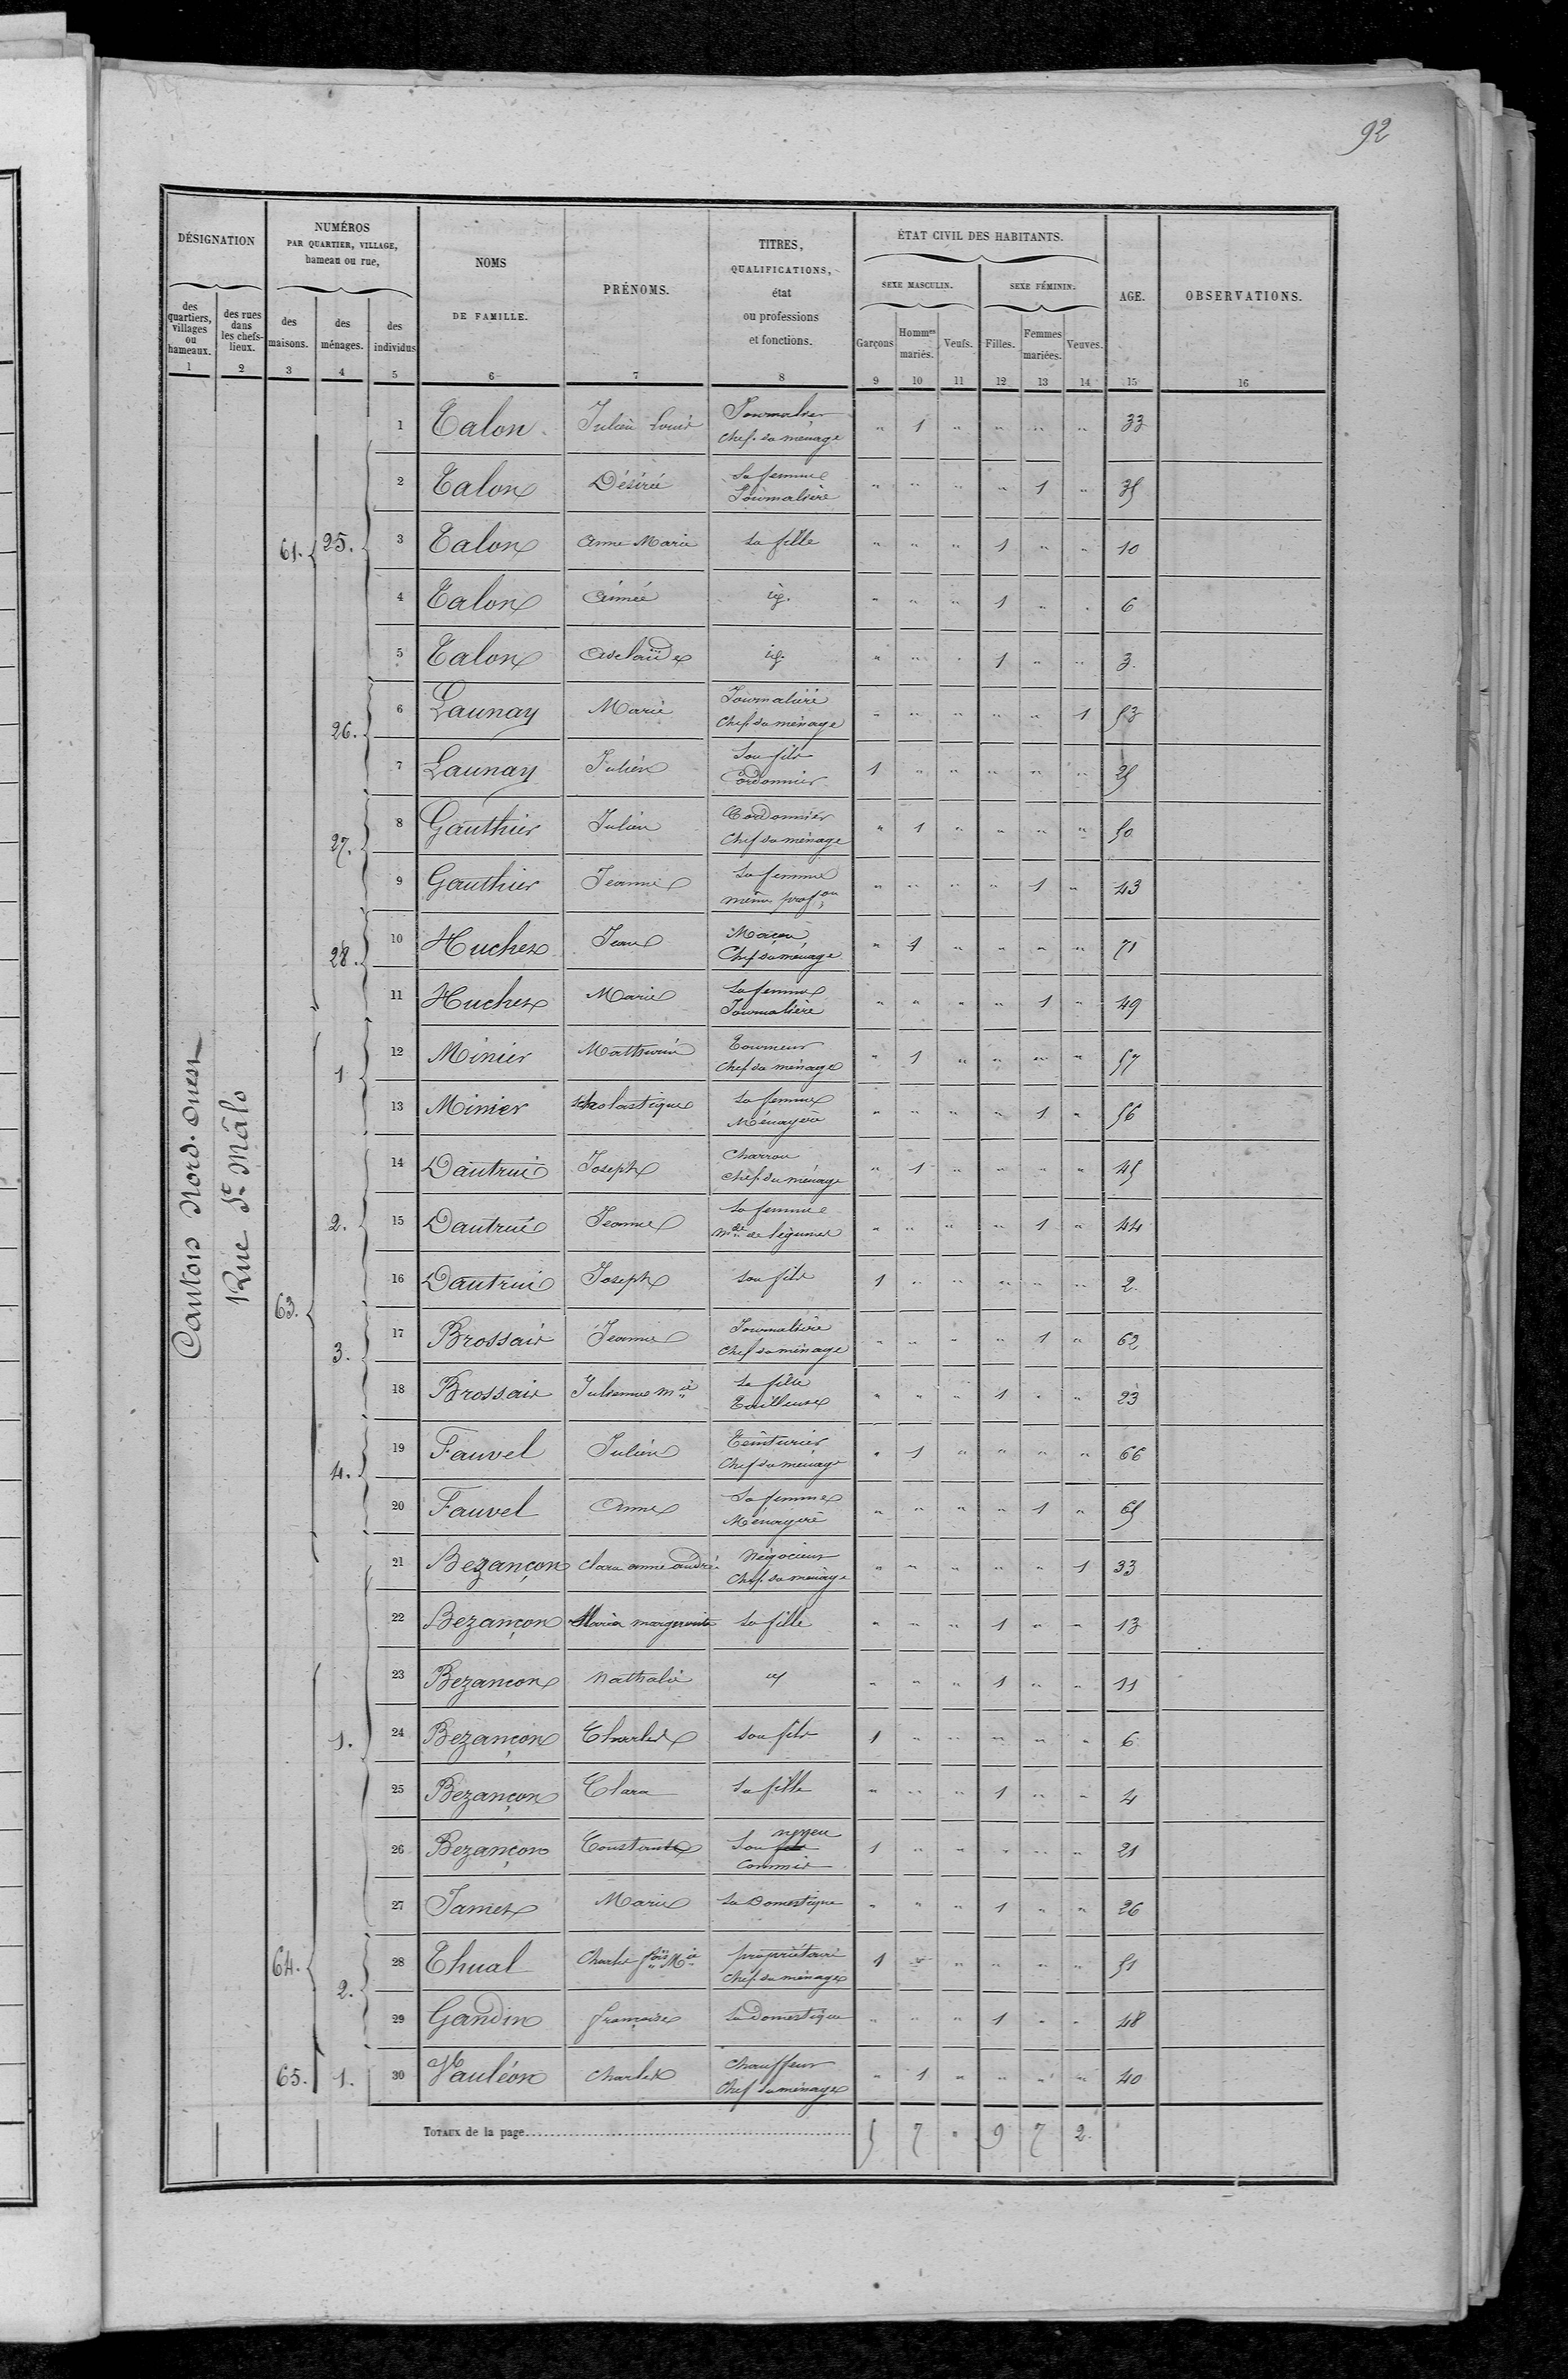 92
DÉSIGNATION
NUMÉROS
PAR QUARTIER, VILLAGE,
hameau ou rue,
NOMS
DE FAMILLE.
PRÉNOMS.
TITRES,
QUALIFICATIONS,
état
ou professions
et fonctions.
ÉTAT CIVIL DES HABITANTS.
SEXE MASCULIN.
SEXE FÉMININ.
AGE.
OBSERVATIONS.
des quartiers, villages ou hameaux.
des rues dans les chefs-lieux.
des maisons.
des ménages.
des individus
Garçons
Hommes mariés.
Veufs.
Filles.
Femmes mariées.
Veuves.
1 2 3 4 5 6 7 8 9 10 11 12 13 14 15 16
Canton Nord-Ouest
Rue St Mâlo
1 Talon Julien Louis Journalier chef du ménage " 1 " " " " 33
2 Talon Désirée Sa femme Journalière " " " " 1 " 35
61. 25. 3 Talon Anne Marie Sa fille " " " 1 " " 10
4 Talon Aimée id. " " " 1 " " 6
5 Talon Adelaïde id. " " " 1 " " 3
26. 6 Launay Marie Journalière Chef du ménage " " " " " 1 53
7 Launay Julien Son fils Cordonnier 1 " " " " " 25
27. 8 Gauthier Julien Cordonnier Chef du ménage " 1 " " " " 50
9 Gauthier Jeanne Sa femme même profon " " " " 1 " 43
28. 10 Huchet Jean Maçon Chef du ménage " 1 " " " " 71
11 Huchet Marie Sa femme Journalière " " " " 1 " 49
1 12 Minier Mathurin Tourneur Chef du ménage " 1 " " " " 57
13 Minier Scholastique Sa femme Ménagère " " " " 1 " 56
14 Dautrui Joseph Charron chef du ménage " 1 " " " " 45
2. 15 Dautrui Jeanne Sa femme mde de légumes " " " " 1 " 44
63. 16 Dautrui Joseph son fils 1 " " " " " 2.
3. 17 Brossais Jeanne Journalière Chef du ménage " " " " 1 " 62
18 Brossais Julienne mie Sa fille Tailleuse " " " 1 " " 23
4. 19 Fauvel Julien Teinturier Chef du ménage " 1 " " " " 66
20 Fauvel Anne Sa femme Ménagère " " " " 1 " 65
21 Bezançon Clara anne andrée Négociant Chef du ménage " " " " " 1 33
22 Bezançon Maria marguerite Sa fille " " " 1 " " 13
23 Bezançon Nathalie id " " " 1 " " 11
1. 24 Bezançon Charles son fils 1 " " " " " 6
25 Bezançon Clara Sa fille " " " 1 " " 4
26 Bezançon Constant Son fils neveu Commis 1 " " " " " 21
27 Jamet Marie Sa Domestique " " " 1 " " 26
64. 2. 28 Thual Charles fois Mie propriétaire chef du ménage 1 " " " " " 51
29 Gandin françoise Sa Domestique " " " 1 " " 48
65. 1. 30 Vauléon Charles Chauffeur Chef du ménage " 1 " " " " 40
TOTAUX de la page 5 7 " 9 7 2